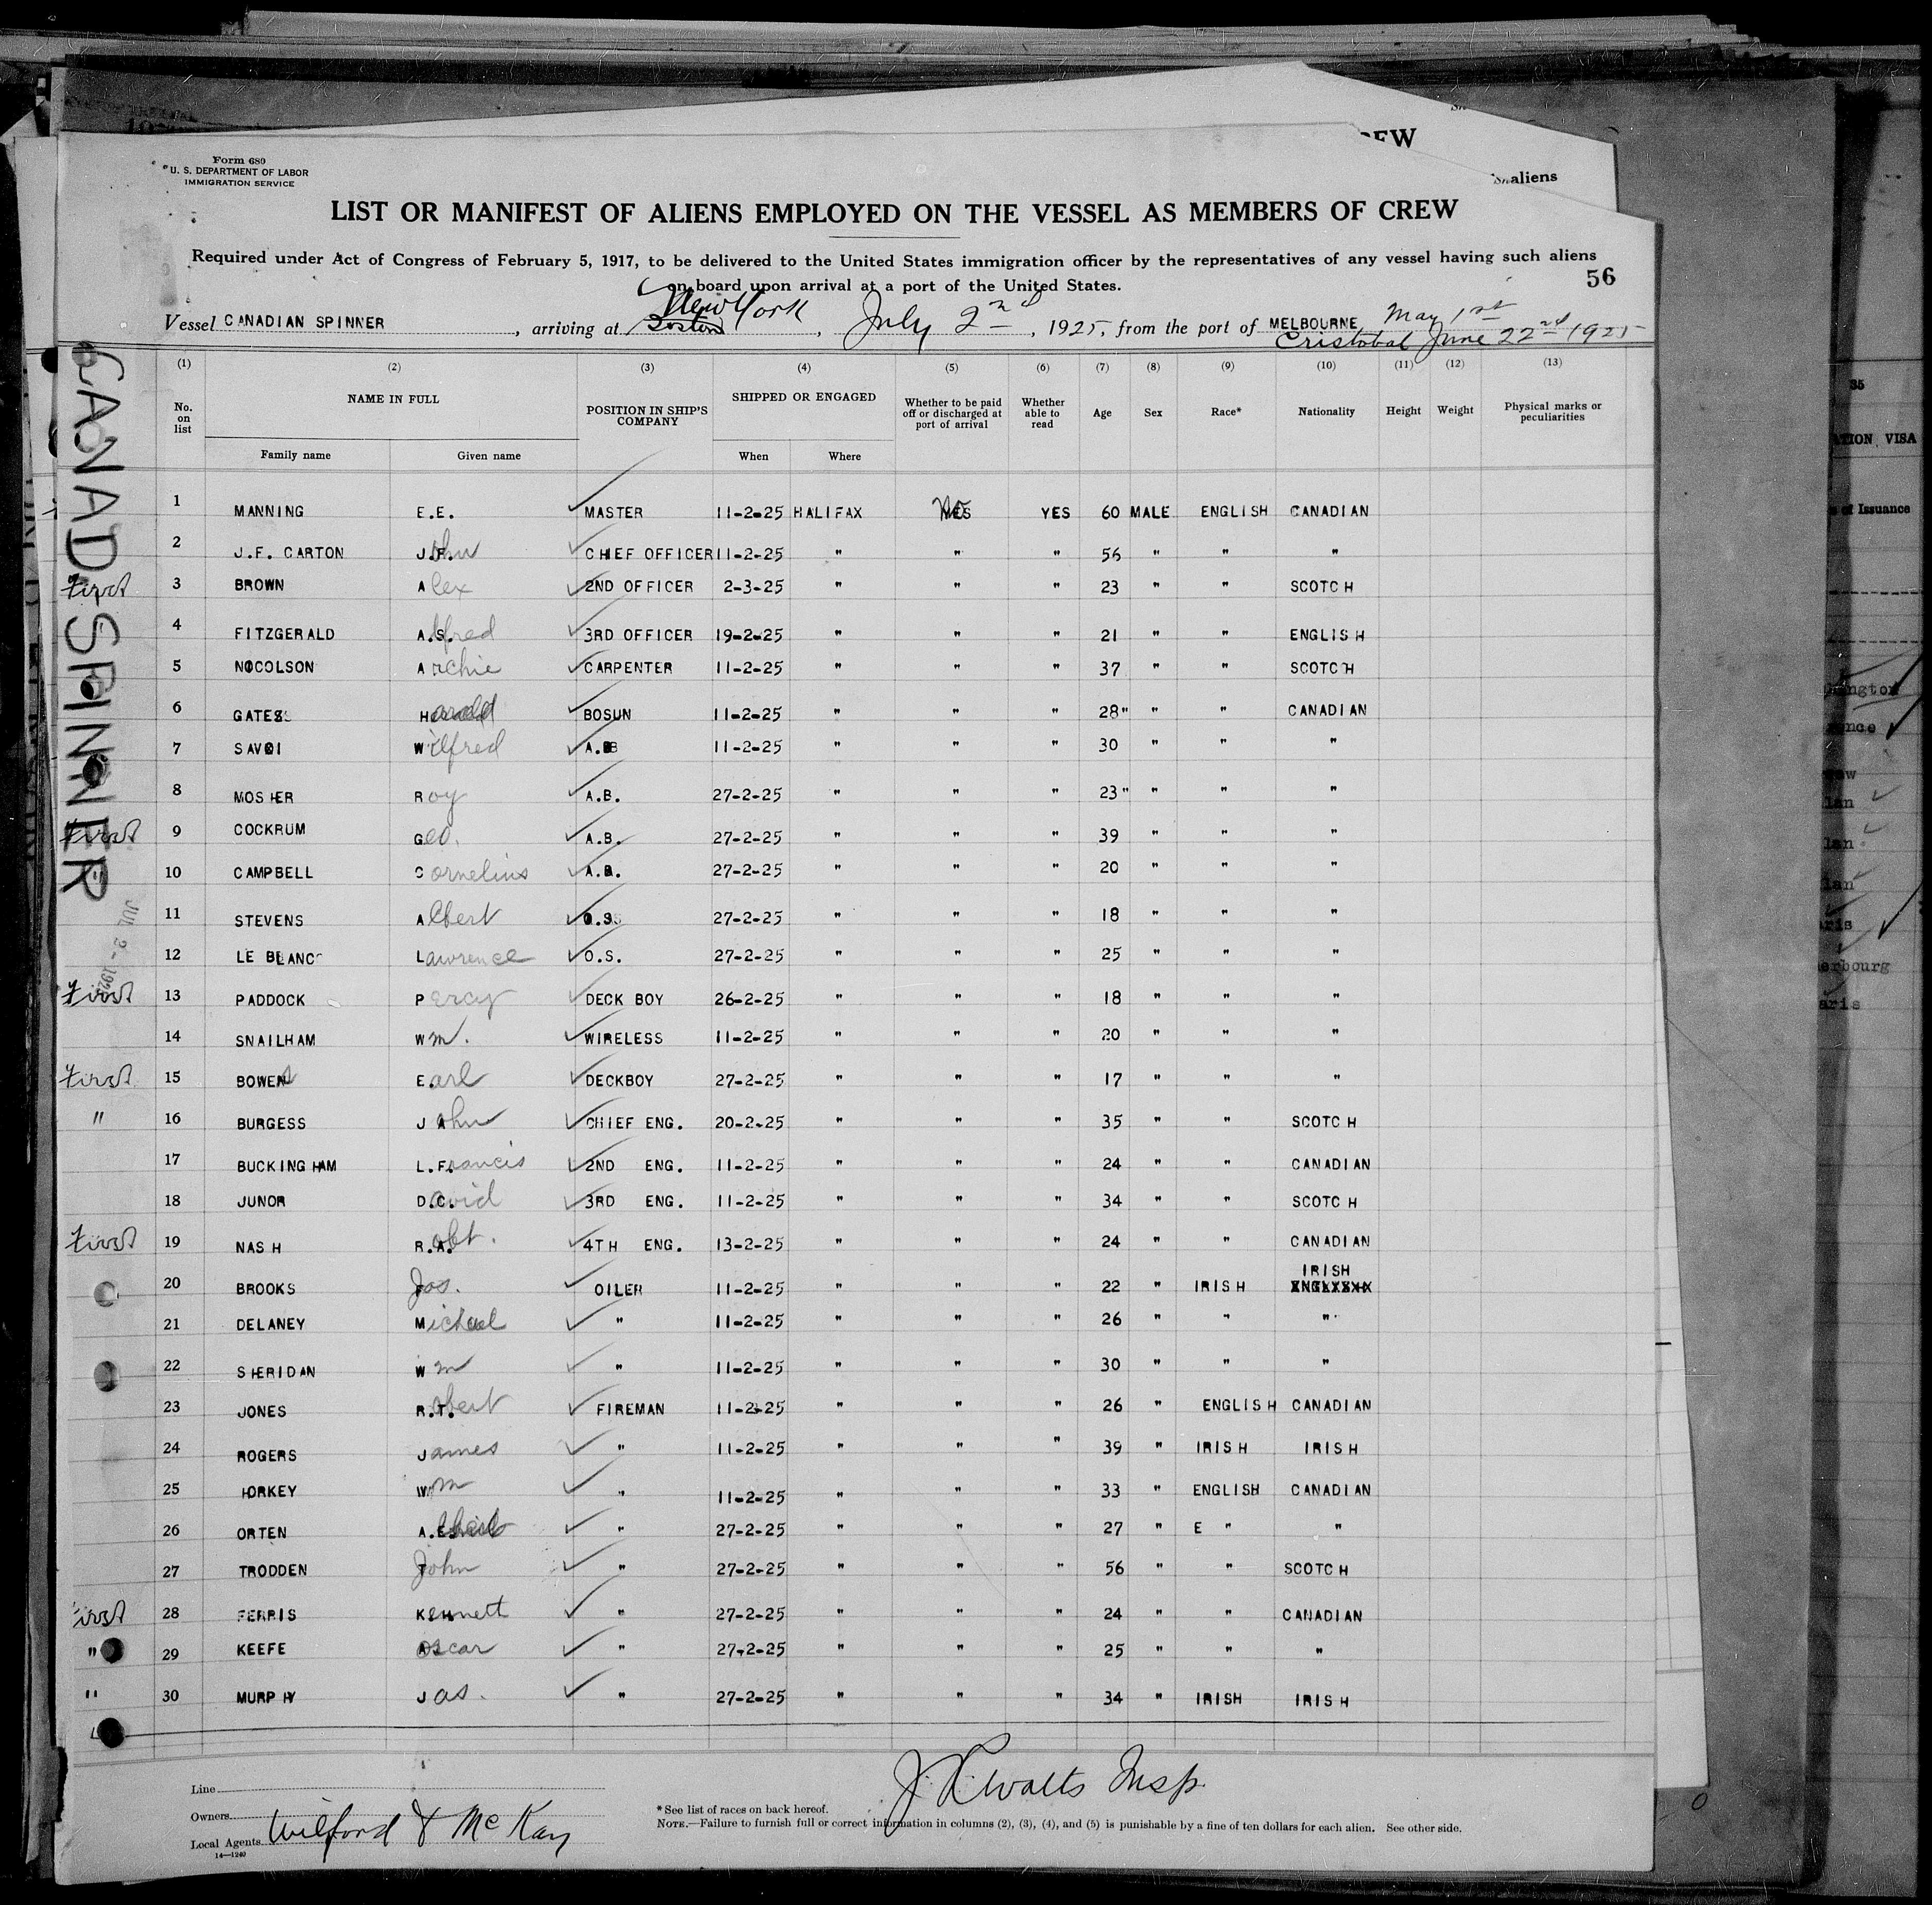 EW
aliens
Form 680
U. S. DEPARTMENT OF LABOR
IMMIGRATION SERVICE
LIST OR MANIFEST OF ALIENS EMPLOYED ON THE VESSEL AS MEMBERS OF CREW
Required under Act of Congress of February 5, 1917, to be delivered to the United States immigration officer by the representatives of any vessel having such aliens
on board upon arrival at a port of the United States.
56
New York May 1st
Vessel CANADIAN SPINNER, arriving at Boston, July 2nd, 1925, from the port of MELBOURNE
Cristobal June 22nd 1925
(1) (2) (3) (4) (5) (6) (7) (8) (9) (10) (11) (12) (13)
No. on list NAME IN FULL POSITION IN SHIP'S COMPANY SHIPPED OR ENGAGED Whether to be paid off or discharged at port of arrival Whether able to read Age Sex Race* Nationality Height Weight Physical marks or peculiarities
Family name Given name When Where
1 MANNING E.E. MASTER 11-2-25 HALIFAX No YES 60 MALE ENGLISH CANADIAN
2 J.F. CARTON J.F. John CHIEF OFFICER 11-2-25 " " " 56 " " "
First 3 BROWN Alex 2ND OFFICER 2-3-25 " " " 23 " " SCOTCH
4 FITZGERALD A.S. Alfred 3RD OFFICER 19-2-25 " " " 21 " " ENGLISH
5 NOCOLSON Archie CARPENTER 11-2-25 " " " 37 " " SCOTCH
6 GATES Harold BOSUN 11-2-25 " " " 28" " " CANADIAN
7 SAVOI Wilfred A.B 11-2-25 " " " 30 " " "
8 MOSHER Roy A.B. 27-2-25 " " " 23" " " "
First 9 COCKRUM Geo. A.B. 27-2-25 " " " 39 " " "
10 CAMPBELL Cornelius A.B. 27-2-25 " " " 20 " " "
11 STEVENS Albert O.S 27-2-25 " " " 18 " " "
12 LE BLANC Lawrence O.S. 27-2-25 " " " 25 " " "
First 13 PADDOCK Percy DECK BOY 26-2-25 " " " 18 " " "
14 SNAILHAM Wm. WIRELESS 11-2-25 " " " 20 " " "
First 15 BOWEN Earl DECKBOY 27-2-25 " " " 17 " " "
" 16 BURGESS John CHIEF ENG. 20-2-25 " " " 35 " " SCOTCH
17 BUCKINGHAM L.Francis 2ND ENG. 11-2-25 " " " 24 " " CANADIAN
18 JUNOR D.C. David 3RD ENG. 11-2-25 " " " 34 " " SCOTCH
First 19 NASH R.A. Robt. 4TH ENG. 13-2-25 " " " 24 " " CANADIAN
20 BROOKS Jos. OILER 11-2-25 " " " 22 " IRISH IRISH
21 DELANEY Michael " 11-2-25 " " " 26 " " "
22 SHERIDAN Wm " 11-2-25 " " " 30 " " "
23 JONES R.T. Robert FIREMAN 11-2-25 " " " 26 " ENGLISH CANADIAN
24 ROGERS James " 11-2-25 " " " 39 " IRISH IRISH
25 HORKEY Wm " 11-2-25 " " " 33 " ENGLISH CANADIAN
26 ORTEN A. " 27-2-25 " " " 27 " E " "
27 TRODDEN John " 27-2-25 " " " 56 " " SCOTCH
First 28 FERRIS Kennett " 27-2-25 " " " 24 " " CANADIAN
" 29 KEEFE Oscar " 27-2-25 " " " 25 " " "
" 30 MURPHY Jas. " 27-2-25 " " " 34 " IRISH IRISH
CANAD. SPINNER
JUL 2 - 1925
Line
Owners
Local Agents Wilford & McKay
14—1240
J. R. Walts Insp.
*See list of races on back hereof.
NOTE.—Failure to furnish full or correct information in columns (2), (3), (4), and (5) is punishable by a fine of ten dollars for each alien. See other side.
35
VISA
of Issuance